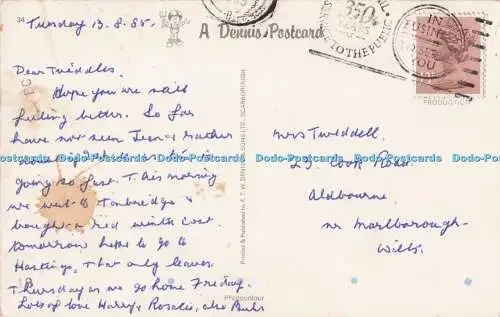 34
Tuesday 13.8.85.
A Dennis Postcard
350
YEARS
SERVICE TO THE PUBLIC
IN
YOU
PRODUCTION
Dear Twiddles,
Hope you are still
feeling better. So far
have not seen Jean & Heather
going so fast. This morning
we went to Tonbridge &
bought a red winter coat
tomorrow hope to go to
Hastings, that only leaves
Thursday as we go home Friday.
Lots of love Harry, Rosalie, also
Printed & Published by E. T. W. DENNIS & SONS LTD., SCARBOROUGH
Photocolour
Mrs Twiddell.
23 Cook Road.
Aldbourne.
nr Marlborough
Wilts.
Dodo-Postcards Dodo-Postcards Dodo-Postcards Dodo-Postcards Dodo-Postcards